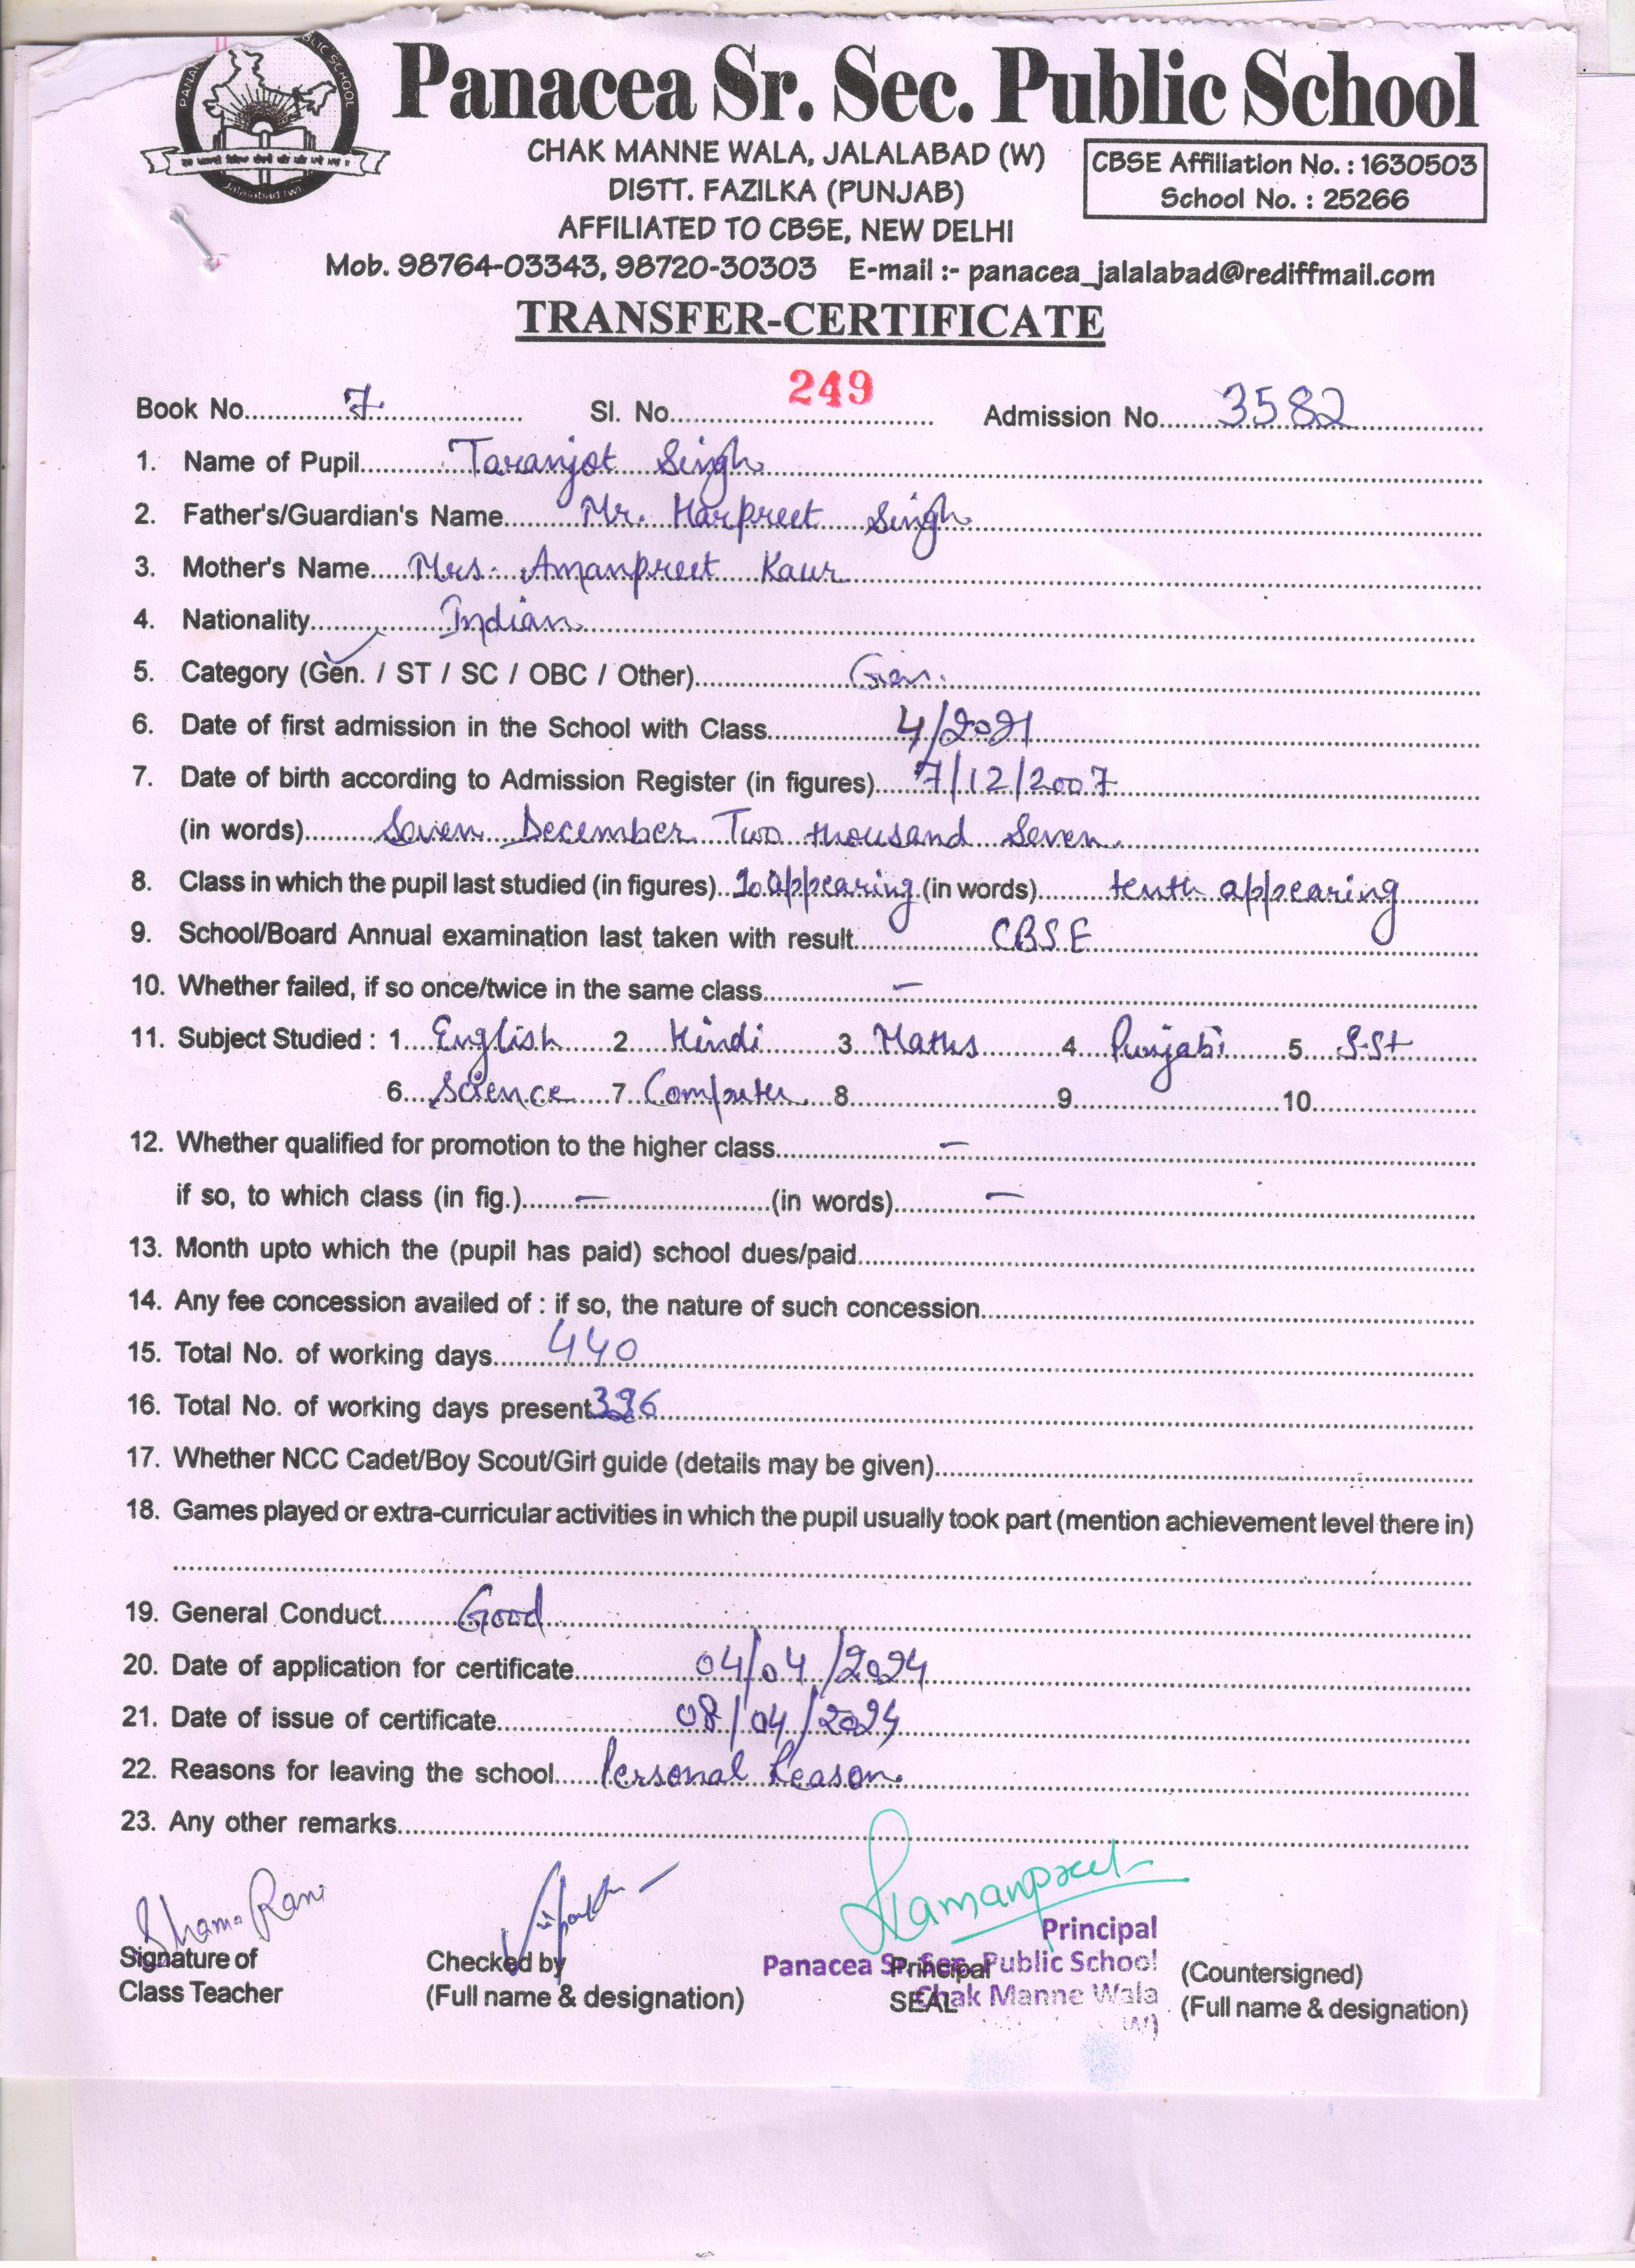 PANA BLIC SCHOOL
Jalalabad (W)
Panacea Sr. Sec. Public School
CHAK MANNE WALA, JALALABAD (W)
DISTT. FAZILKA (PUNJAB)
AFFILIATED TO CBSE, NEW DELHI
CBSE Affiliation No. : 1630503
School No. : 25266
Mob. 98764-03343, 98720-30303 E-mail :- panacea_jalalabad@rediffmail.com
TRANSFER-CERTIFICATE
Book No. 7 Sl. No. 249 Admission No. 3582
1. Name of Pupil Taranjot Singh
2. Father's/Guardian's Name Mr. Harpreet Singh
3. Mother's Name Mrs. Amanpreet Kaur
4. Nationality Indian
5. Category (Gen. / ST / SC / OBC / Other) Gen.
6. Date of first admission in the School with Class 4/2021
7. Date of birth according to Admission Register (in figures) 7/12/2007
(in words) Seven December Two thousand Seven
8. Class in which the pupil last studied (in figures) 10 appearing (in words) tenth appearing
9. School/Board Annual examination last taken with result CBSE
10. Whether failed, if so once/twice in the same class —
11. Subject Studied : 1 English 2 Hindi 3 Maths 4 Punjabi 5 S.St
6 Science 7 Computer 8 9 10
12. Whether qualified for promotion to the higher class —
if so, to which class (in fig.) — (in words) —
13. Month upto which the (pupil has paid) school dues/paid
14. Any fee concession availed of : if so, the nature of such concession
15. Total No. of working days 440
16. Total No. of working days present
17. Whether NCC Cadet/Boy Scout/Girl guide (details may be given)
18. Games played or extra-curricular activities in which the pupil usually took part (mention achievement level there in)
19. General Conduct Good
20. Date of application for certificate 04/04/2024
21. Date of issue of certificate 08/04/2024
22. Reasons for leaving the school Personal Reason
23. Any other remarks
Shama Rani Ramanpreet
Principal
Signature of Checked by Panacea Sr. Sec. Public School Principal (Countersigned)
Class Teacher (Full name & designation) SEAL Chak Manne Wala (Full name & designation)